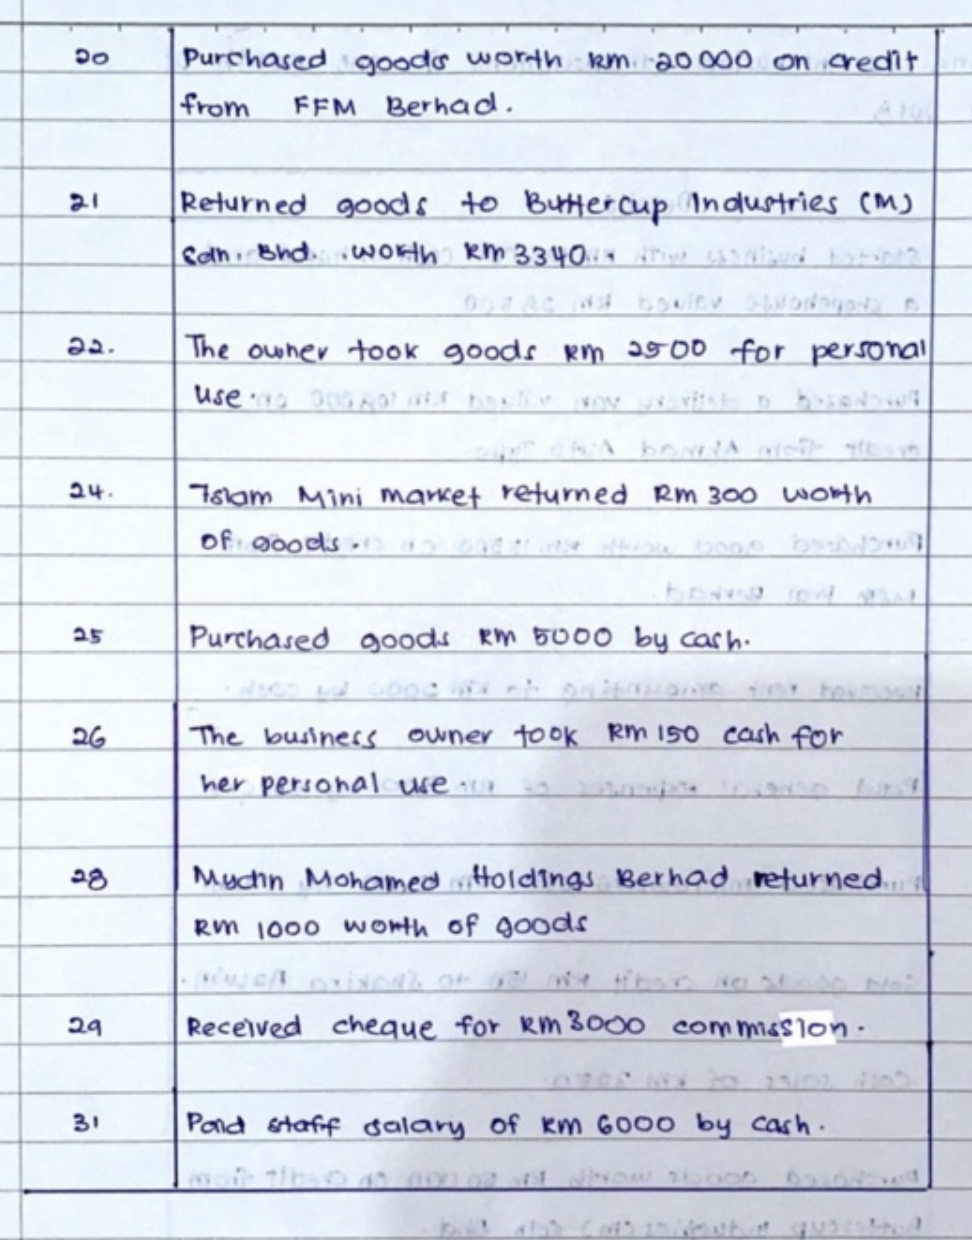 20 Purchased goods worth RM 20 000 on credit
from FFM Berhad.
21 Returned goods to Buttercup Industries (M)
Sdn. Bhd. worth RM 3340.
22. The owner took goods RM 2500 for personal
use.
24. Islam Mini market returned RM 300 worth
of goods.
25 Purchased goods RM 5000 by cash.
26 The business owner took RM 150 cash for
her personal use.
28 Mydin Mohamed Holdings Berhad returned
RM 1000 worth of goods
29 Received cheque for RM 3000 commission.
31 Paid staff salary of RM 6000 by cash.